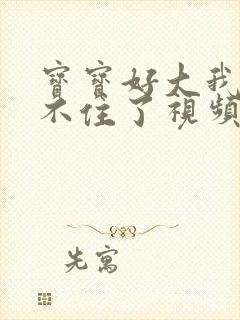 寶寶好大我
不住了視頻
先寓